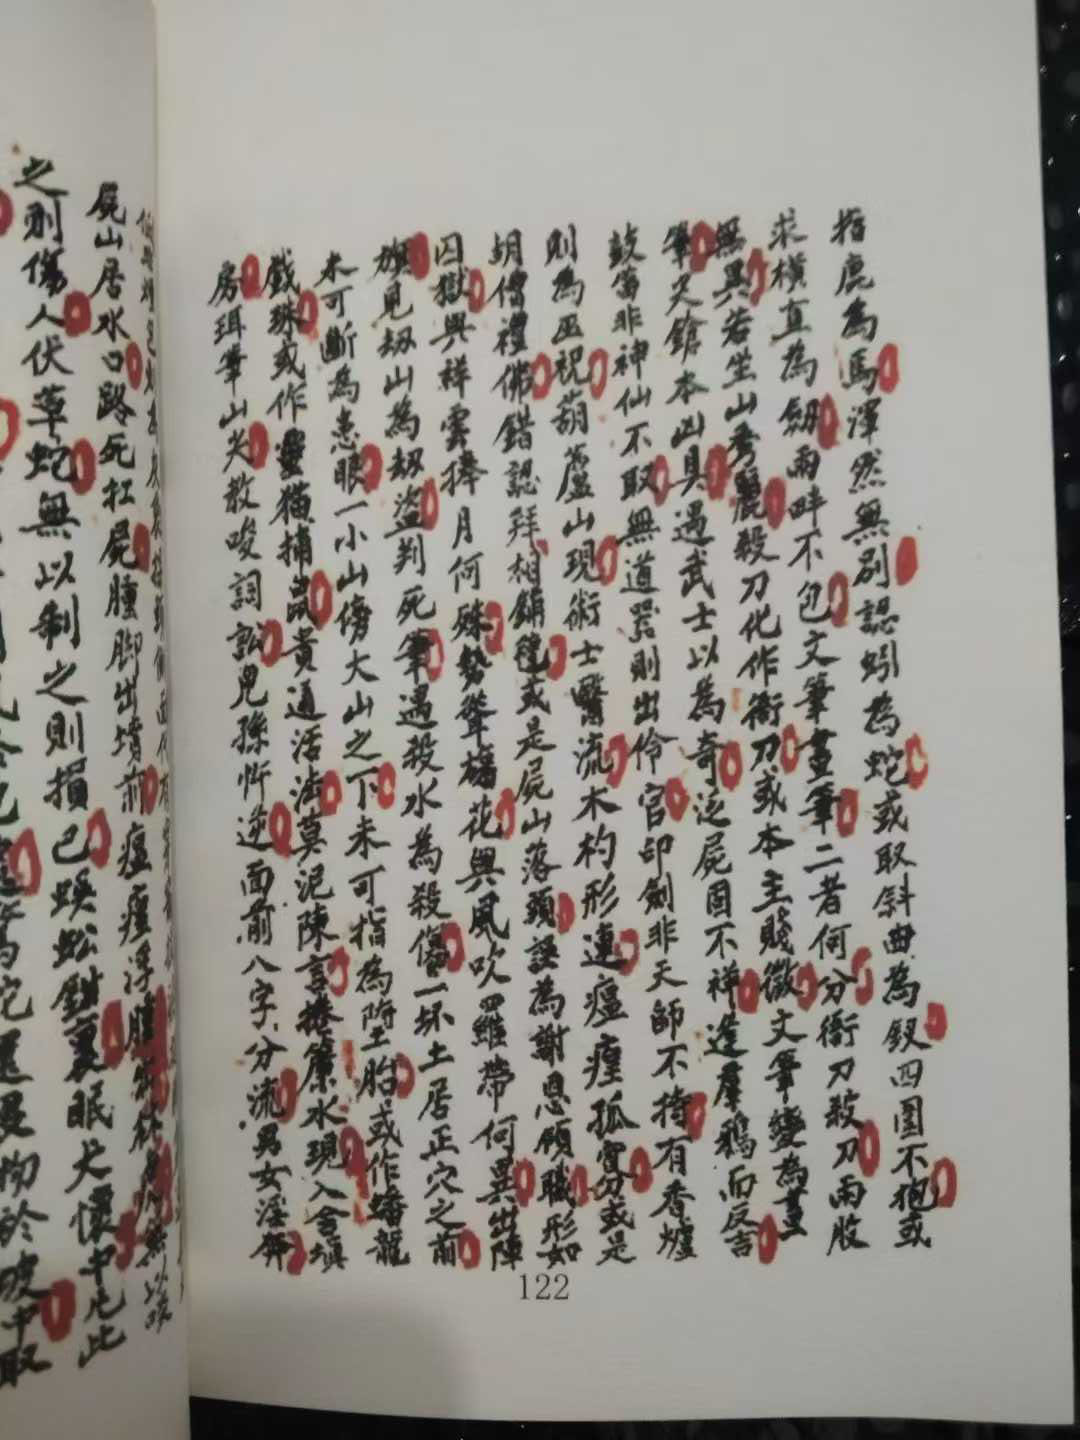 指鹿為馬渾然無別認蚓為蛇或取斜曲為釵四圍不抱或
求橫直為劍兩畔不包文筆畫筆二者何分衙刀殺刀兩股
無異若坐山秀麗殺刀化作衙刀或本主賤微文筆變為畫
筆尖鎗本凶具遇武士以為奇泛屍固不祥逢羣鴉而反吉
鼓笛非神仙不取無道器則出伶官印劍非天師不持有香爐
則為巫祝葫蘆山現術士醫流木杓形連瘟㾮孤寡分或是
胡僧禮佛錯認拜相鋪氊或是屍山落頭誤為謝恩領職形如
囚獄與祥雲捧月何殊勢聳旛花與風吹羅帶何異出陣
旗見刼山為刼盜判死筆遇殺水為殺傷一坏土居正穴之前
未可斷為患眼一小山傍大山之下未可指為墮胎或作蟠龍
戲珠或作靈猫捕鼠貴通活法莫泥陳言捲簾水現入舍填
房珥筆山尖教唆詞訟兒孫忤逆面前八字分流男女淫奔
屍山居水口路死扛屍腫脚出墳前瘟㾮浮腫
之刑傷人伏草蛇無以制之則損己蜈蚣鉗裏眠犬懷中